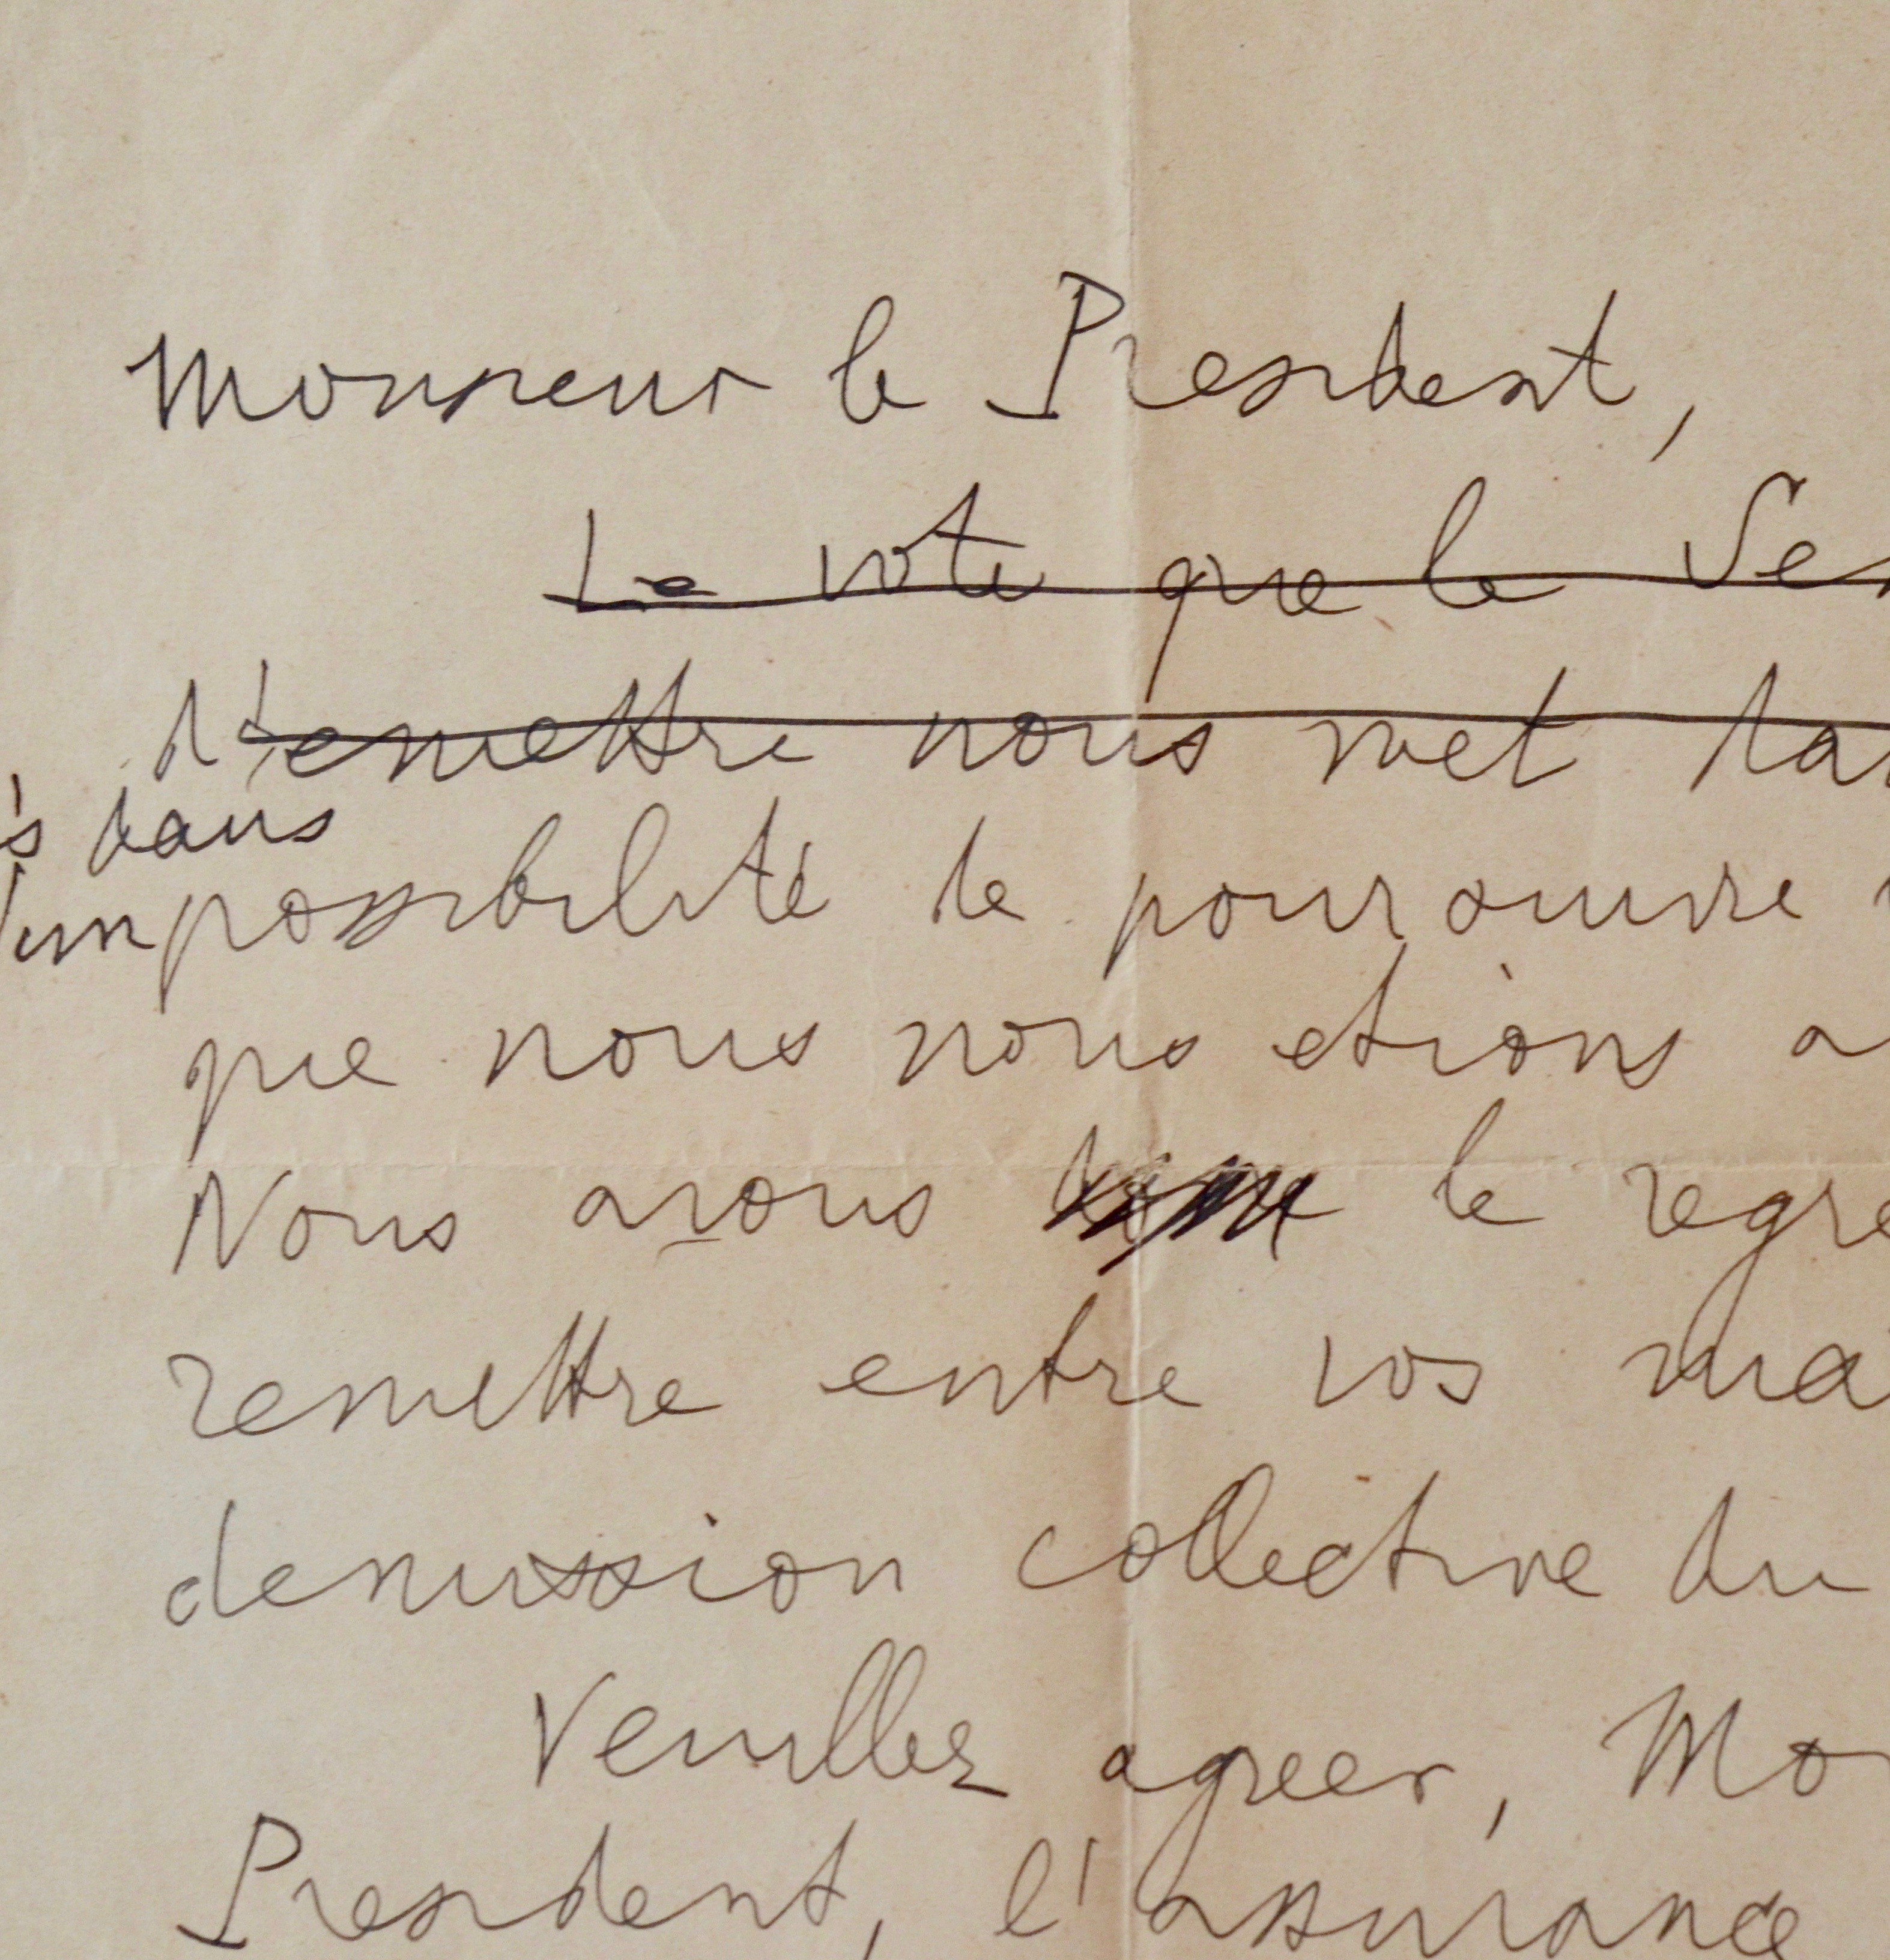 Monsieur le President,
Le vote que le Sen
d'emettre nous met dan
is dans
l'impossibilité de poursuivre
que nous nous etions a
Nous avons le regre
remettre entre vos mai
demission collective du
Veuillez agreer, Mon
President, l'assurance